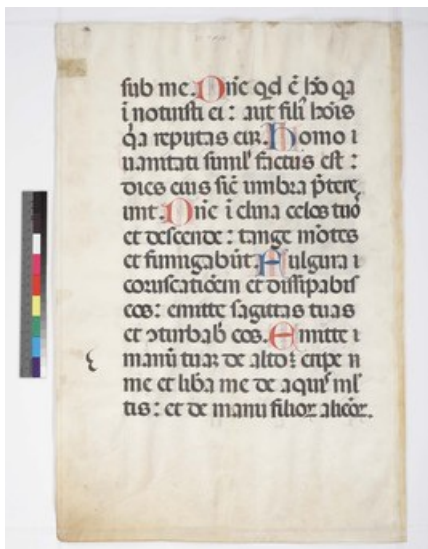 sub me. Dn̄e qd ē hō qa
ī notuisti ei : aut fili hoīs
q̄a reputas eū. Homo i
uanitati simil' factus est :
dies eius sic̄ umbra p̄tere
unt. Dn̄e ī clina celos tuos
et descende : tange mōtes
et fumigabūt. Fulgura i
coruscatiōem et dissipabis
eos : emitte sagittas tuas
et ↄturbab' eos. Emitte i
manū tuaꝫ de alto : eripe n
me et lib̄a me de aquis ml'
tis : et de manu filioꝝ alieōꝝ.